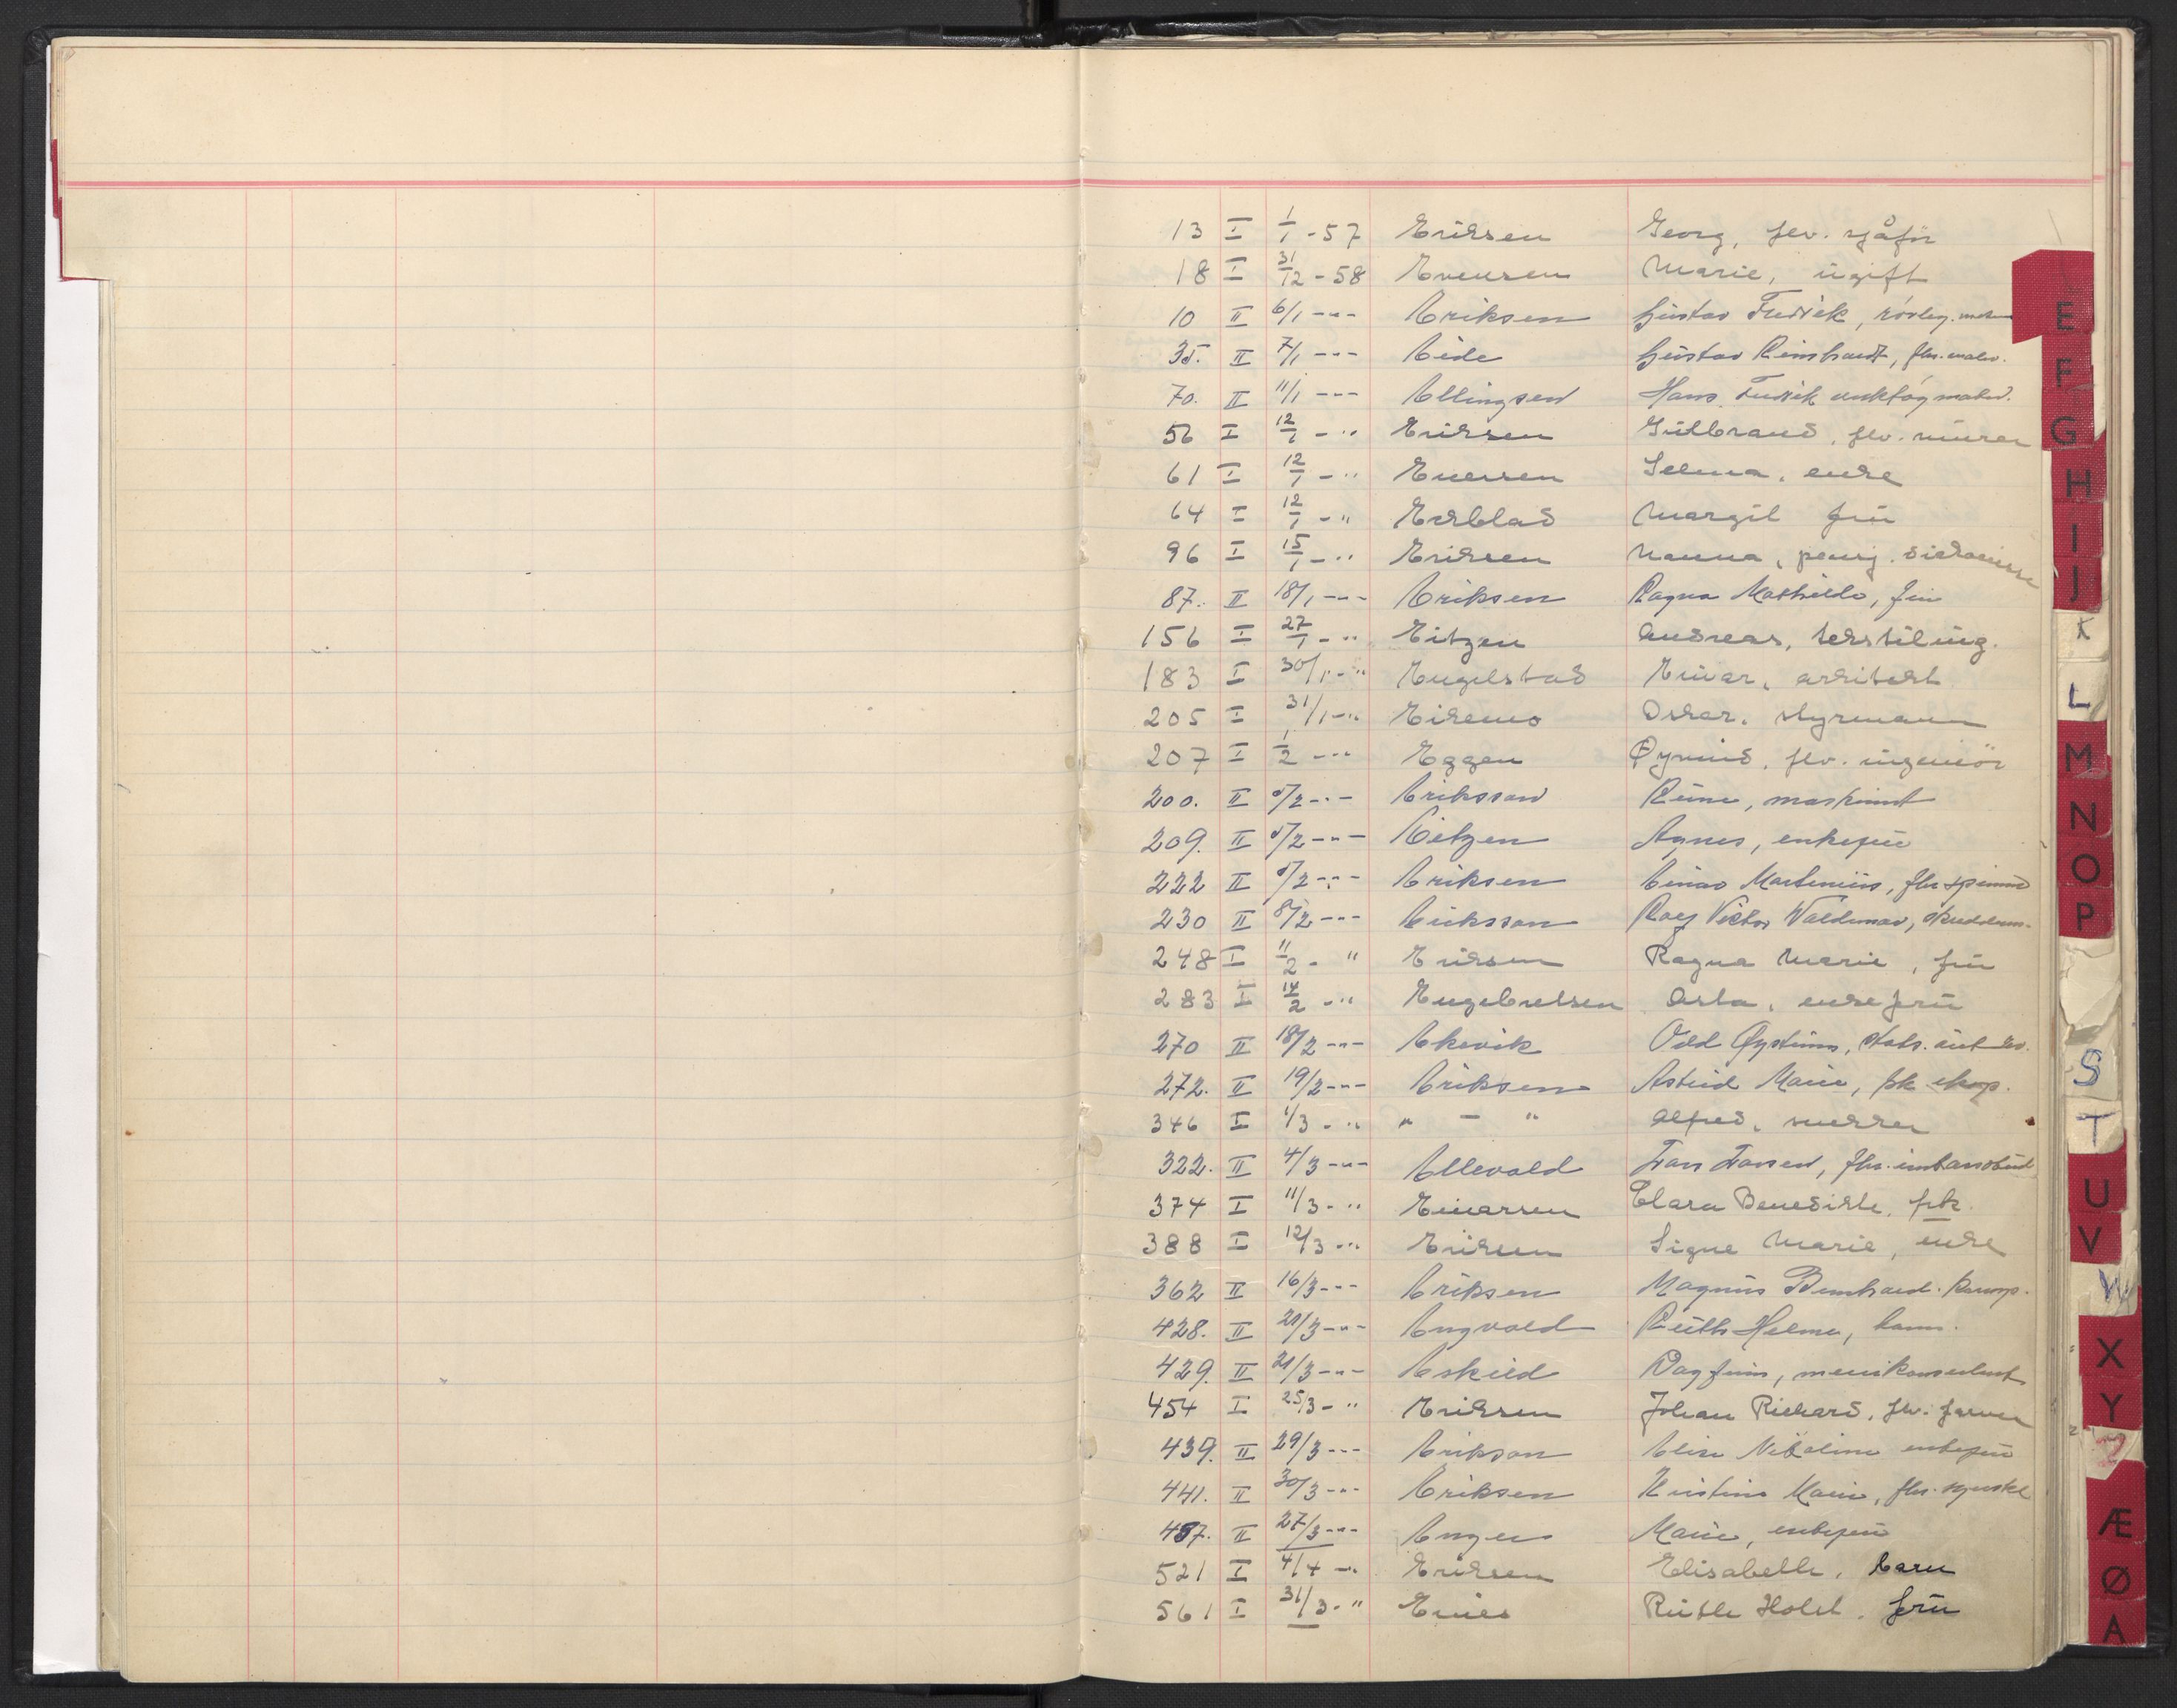 13 I 1/1 - 57 Eriksen Georg, fev. sjåför
18 I 31/12 - 58 Evensen Marie, ugift
10 II 6/1 -"- Eriksen Gustav Fredrik, rörlegg.
35. II 7/1 -"- Eide Gustav Reinhardt, fhv.
70. II 11/1 -"- Ellingsen Hans Fredrik
56 I 12/1 - " Eriksen Gulbrand, fev. murer
61 I 12/1 - " Selma, enke
64 I 12/1 - " Ekblad Margit fru
96 I 15/1 - " Eriksen Nanna, pensj. diakonisse
87. II 18/1 -"- Eriksen Ragna Mathilde, fru
156 I 27/1 - " Eitzen Andreas, tekstiling.
183 I 30/1 - " Engelstad Einar, arkitekt
205 I 31/1 - " Eikemo Oskar, styrmann
207 I 1/2 - " Eggen Öyvind, fev. ingeniör
200. II 5/2 -"- Eriksson Rune, maskinist
209. II 5/2 -"- Eitzen Agnes, enkefru
222 II 5/2 -"- Eriksen Einar Martinius, fhv.
230 II 8/2 -"- Eriksson Roey Victor Valdemar,
248 I 11/2 - " Eriksen Ragna Marie, fru
283 I 14/2 - " Engebretsen Asta, enkefru
270 II 18/2 -"- Ekevik Odd Öystein,
272. II 19/2 -"- Eriksen Astrid Marie, frk eksp.
346 I 1/3 - " " - " Alfred, snekker
322. II 4/3 -"- Ellevold fhv.
374 I 11/3 - " Einarsen Clara Benedikte, frk.
388 I 12/3 - " Eriksen Signe Marie, enke
362 II 16/3 -"- Eriksen Magnus Bernhard.
428. II 21/3 -"- Engvold Ruth Helma, barn.
429. II 21/3 -"- Eskild Dagfinn,
454 I 25/3 - " Eriksen Johan Richard, fhv. farver
439. II 29/3 -"- Erikson Elise enkefru
441. II 30/3 -"- Eriksen Kristine Marie, fhv.
457. II 27/3 -"- Enger Marie, enkefru
521 I 4/4 - " Eriksen Elisabeth, barn
561 I 31/3 - " Ruth Holst, fru
E
F
G
H
I
J
K
L
M
N
O
P
S
T
U
V
W
X
Y
Z
Æ
Ø
A